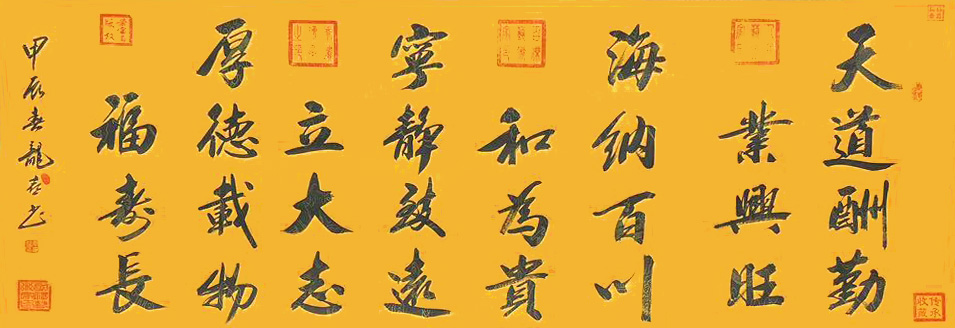 天道酬勤
業興旺
海納百川
和為貴
寧靜致遠
立大志
厚德載物
福寿長
甲辰春龍
传承收藏